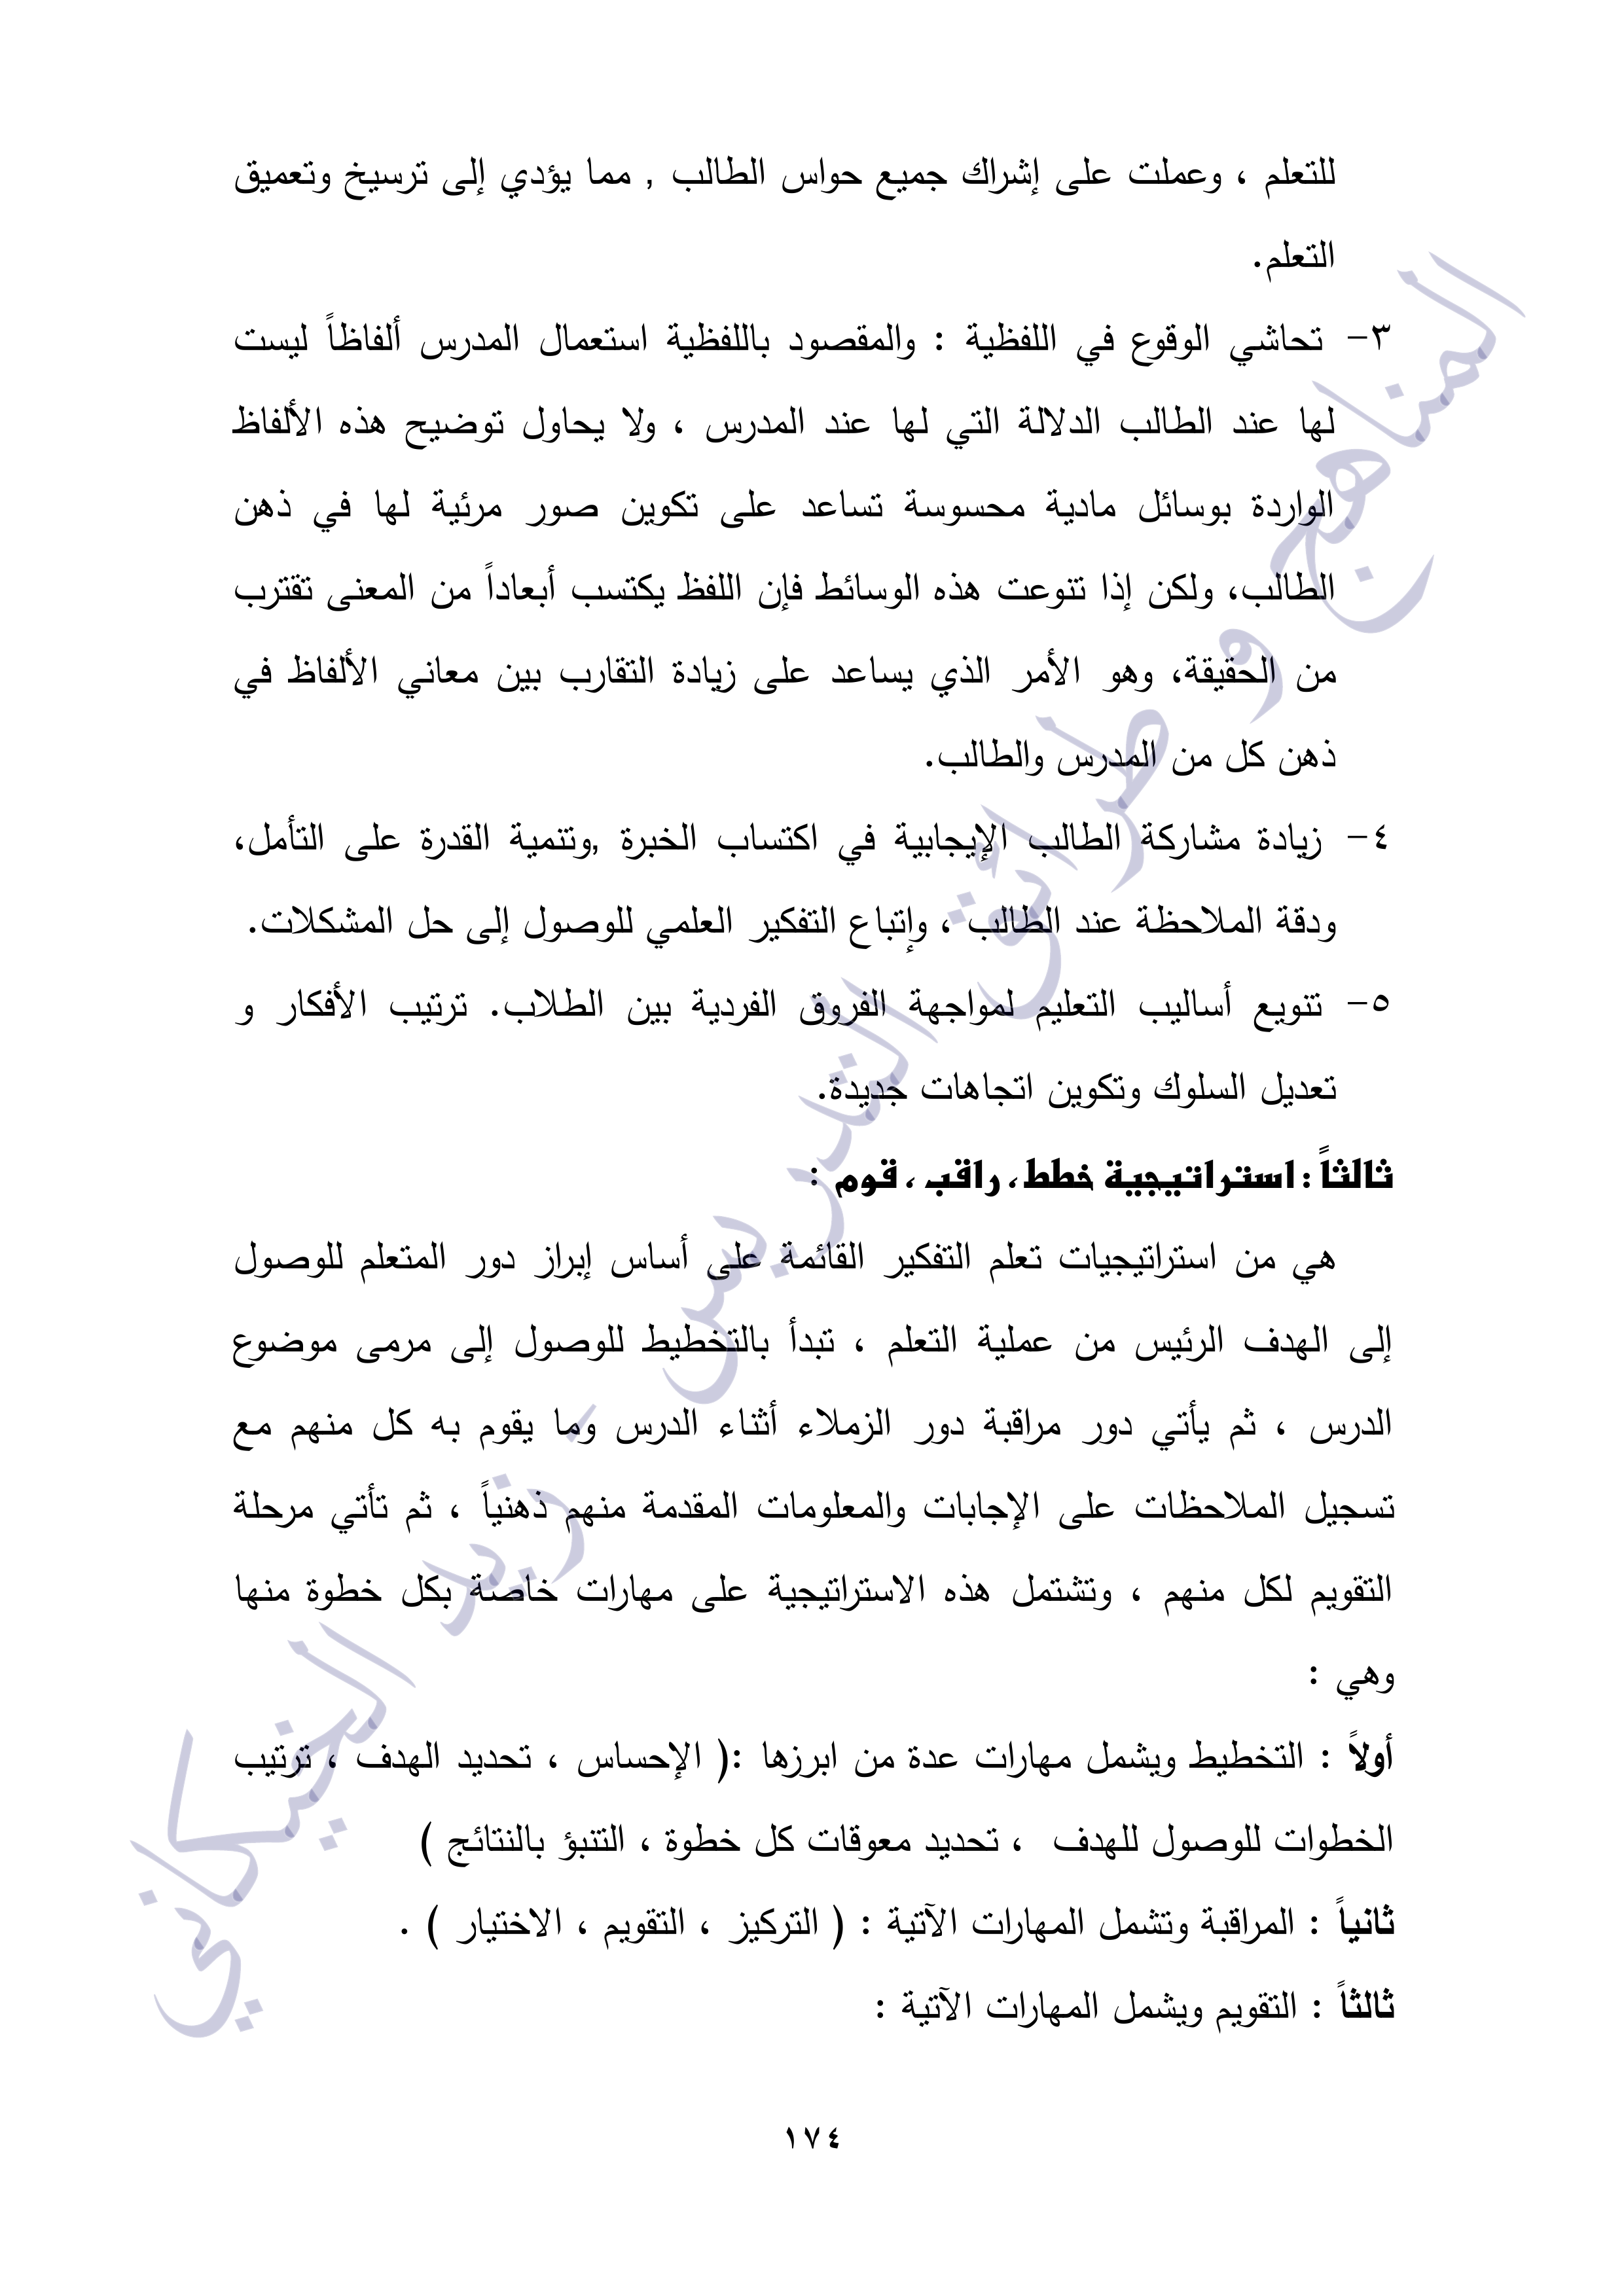 للتعلم ، وعملت على إشراك جميع حواس الطالب , مما يؤدي إلى ترسيخ وتعميق
التعلم.
٣- تحاشي الوقوع في اللفظية : والمقصود باللفظية استعمال المدرس ألفاظاً ليست
لها عند الطالب الدلالة التي لها عند المدرس ، ولا يحاول توضيح هذه الألفاظ
الواردة بوسائل مادية محسوسة تساعد على تكوين صور مرئية لها في ذهن
الطالب، ولكن إذا تنوعت هذه الوسائط فإن اللفظ يكتسب أبعاداً من المعنى تقترب
من الحقيقة، وهو الأمر الذي يساعد على زيادة التقارب بين معاني الألفاظ في
ذهن كل من المدرس والطالب.
٤- زيادة مشاركة الطالب الإيجابية في اكتساب الخبرة ,وتنمية القدرة على التأمل،
ودقة الملاحظة عند الطالب ، وإتباع التفكير العلمي للوصول إلى حل المشكلات.
٥- تنويع أساليب التعليم لمواجهة الفروق الفردية بين الطلاب. ترتيب الأفكار و
تعديل السلوك وتكوين اتجاهات جديدة.
ثالثاً : استراتيجية خطط ، راقب ، قوم :
هي من استراتيجيات تعلم التفكير القائمة على أساس إبراز دور المتعلم للوصول
إلى الهدف الرئيس من عملية التعلم ، تبدأ بالتخطيط للوصول إلى مرمى موضوع
الدرس ، ثم يأتي دور مراقبة دور الزملاء أثناء الدرس وما يقوم به كل منهم مع
تسجيل الملاحظات على الإجابات والمعلومات المقدمة منهم ذهنياً ، ثم تأتي مرحلة
التقويم لكل منهم ، وتشتمل هذه الاستراتيجية على مهارات خاصة بكل خطوة منها
وهي :
أولاً : التخطيط ويشمل مهارات عدة من ابرزها :( الإحساس ، تحديد الهدف ، ترتيب
الخطوات للوصول للهدف ، تحديد معوقات كل خطوة ، التنبؤ بالنتائج )
ثانياً : المراقبة وتشمل المهارات الآتية : ( التركيز ، التقويم ، الاختيار ) .
ثالثاً : التقويم ويشمل المهارات الآتية :
١٧٤
المناهج و طرائق التدريس - زيد الخيكاني